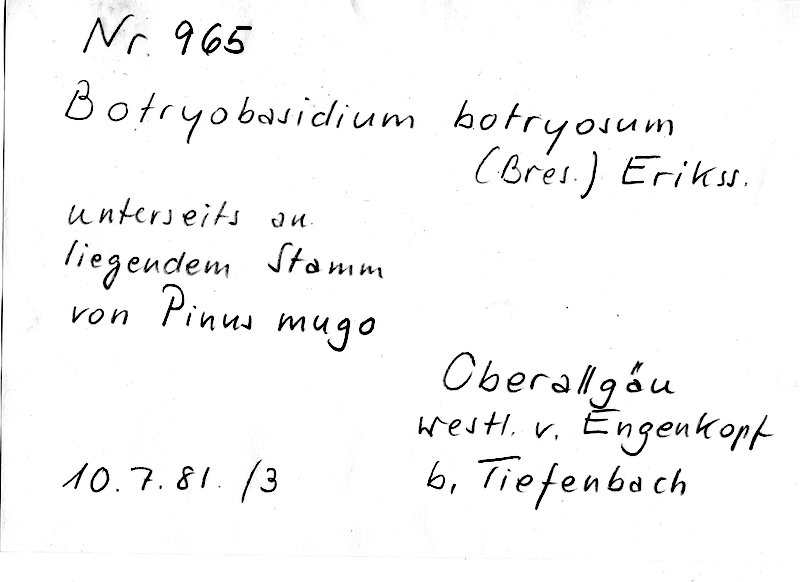 Nr. 965
Botryobasidium botryosum
(Bres.) Erikss.
unterseits an
liegendem Stamm
von Pinus mugo
Oberallgäu
westl. v. Engenkopf
b. Tiefenbach
10.7.81. /3